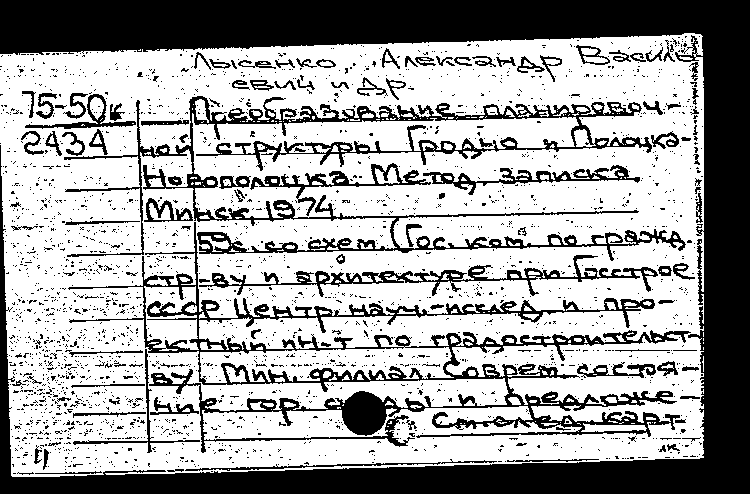 Лысенко, Александр Василь-
евич и др.
75-50к
2434
Преобразование планировоч-
ной структуры Гродно и Полоцка-
Новополоцка. Метод. записка.
Минск, 1974.
59с. со схем. (Гос. ком. по гражд.
стр-ву и архитектуре при Госстрое
СССР. Центр. науч.-исслед. и про-
ектный ин-т по градостроительст-
ву. Мин. филиал. Соврем. состоя-
ние гор. среды и предложе-
См. след. карт.